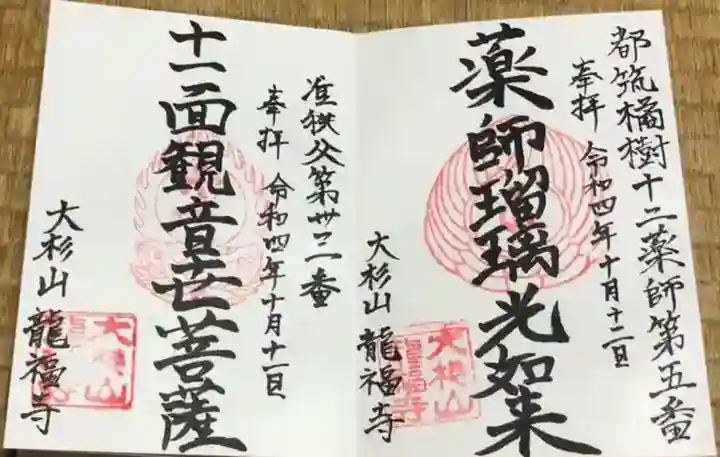 都筑橘樹十二薬師第五番
奉拝 令和四年十月十二日
薬師瑠璃光如来
大杉山 龍福寺
大杉山
龍福寺
准秩父第卅三番
奉拝 令和四年十月十二日
十一面観音菩薩
大杉山 龍福寺
大杉山
龍福寺